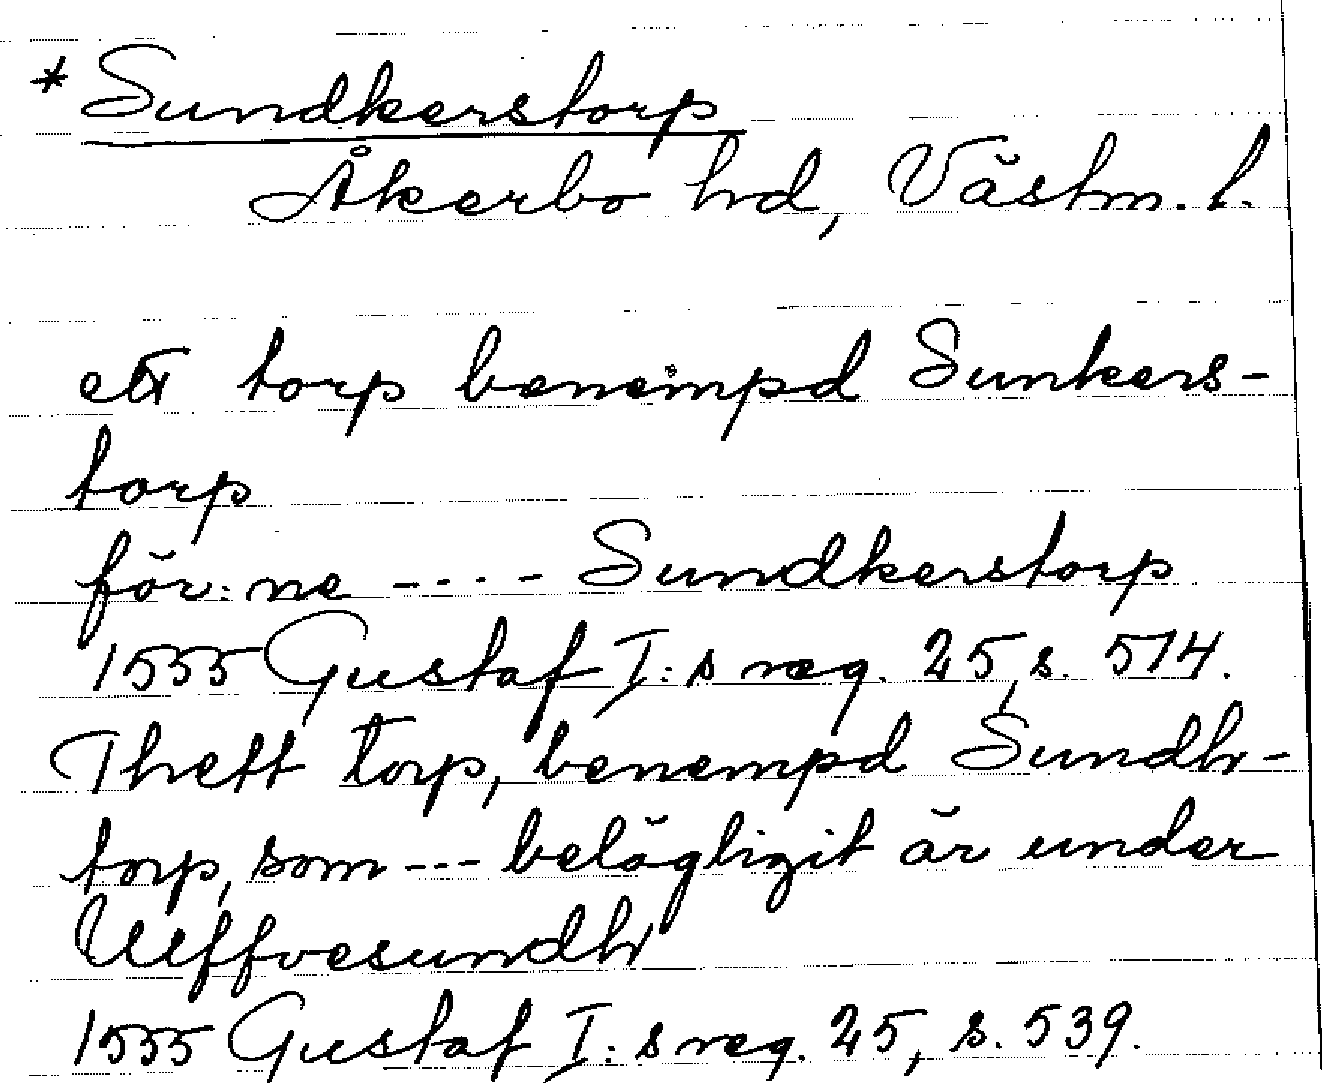 * Sundkerstorp
Åkerbo hd, Västm. l.
ett torp benempd Sunkers-
torp
för:ne -...- Sundkerstorp
1555 Gustaf I:s reg. 25, s. 514.
Thett torp, benempd Sundh-
torp, som --- belägligit är under
Ulffvesundh
1555 Gustaf I:s reg. 25, s. 539.